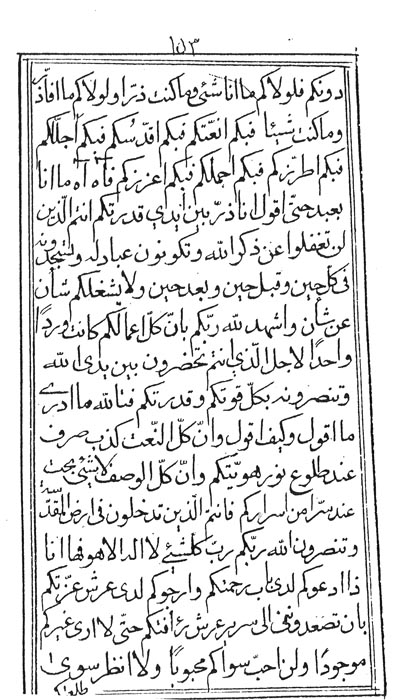 ١٥٣
دونكم فلولاكم ما انا شئ وما كنت ذرّ ولولاكم ما افاذر
وما كنت شيئا فبكم انعتكم فبكم اقدسكم فبكم اجلّلكم
فبكم اطرزكم فبكم اجملكم فبكم اعززكم فآه آه ما انا
بعبد حتى اقول انا ذرّ بين ايدي قدرتكم انتم الذين
لن تغفلوا عن ذكر الله وتكونون عبادا له ولتسجدونه
فى كل حين وقبل حين وبعد حين ولا يشغلكم شأن
عن شأن واشهد لله ربكم بانّ كلّ اعمالكم كانت وردًا
واحدًا لاجل الذي انتم تحضرون بين يدى الله
وتنصرونه بكل قوتكم وقدرتكم فتالله ما ادرى
ما اقول وكيف اقول وانّ كلّ النعت كذب صرف
عند طلوع نور هويتكم وانّ كلّ الوصف لاشئ بحت
عند سرّ من اسراركم فانتم الذين تدخلون فى ارض المقدسة
وتنصرون الله ربكم ربّ كلشئ لا اله الا هو فها انا
ذا ادعوكم لدى باب رحمتكم وارجوكم لدى عرش عزّتكم
بان تصعدونى الى سرير عرش رأفتكم حتى لا ارى غيركم
موجودًا ولن احبّ سواكم محبوبًا ولا انظر سوى
طلعتكم